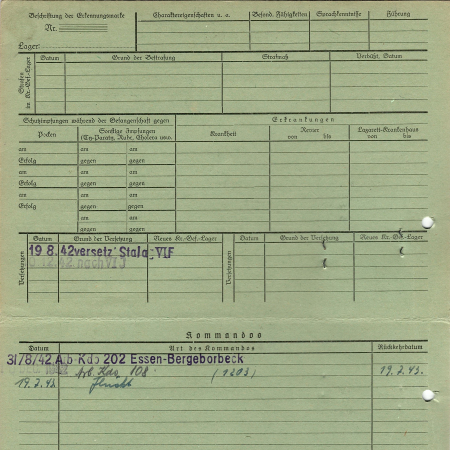 Beschriftung der Erkennungsmarke
Nr.
Lager:
Charaktereigenschaften u. a.
Besond. Fähigkeiten
Sprachkenntnisse
Führung
Strafen im Kr.-Gef.-Lager
Datum
Grund der Bestrafung
Strafmaß
Verbüßt, Datum
Schutzimpfungen während der Gefangenschaft gegen
Erkrankungen
Pocken
Sonstige Impfungen
(Ty-Paraty, Ruhr, Cholera usw.)
Krankheit
Revier
von bis
Lazarett-Krankenhaus
von bis
am am am
Erfolg gegen gegen
am am am
Erfolg gegen gegen
am am am
Erfolg gegen gegen
am am
gegen gegen
Versetzungen
Datum
Grund der Versetzung
Neues Kr.-Gef.-Lager
Versetzungen
Datum
Grund der Versetzung
Neues Kr.-Gef.-Lager
19 8. 42 versetz' Stalag VI F
12.42. nach VI J
Kommandos
Datum
Art des Kommandos
Rückkehrdatum
31/8/42 Arb Kdo 202 Essen-Bergeborbeck
Arb. Kdo 108 (1203) 19.2.43.
19.2.43.